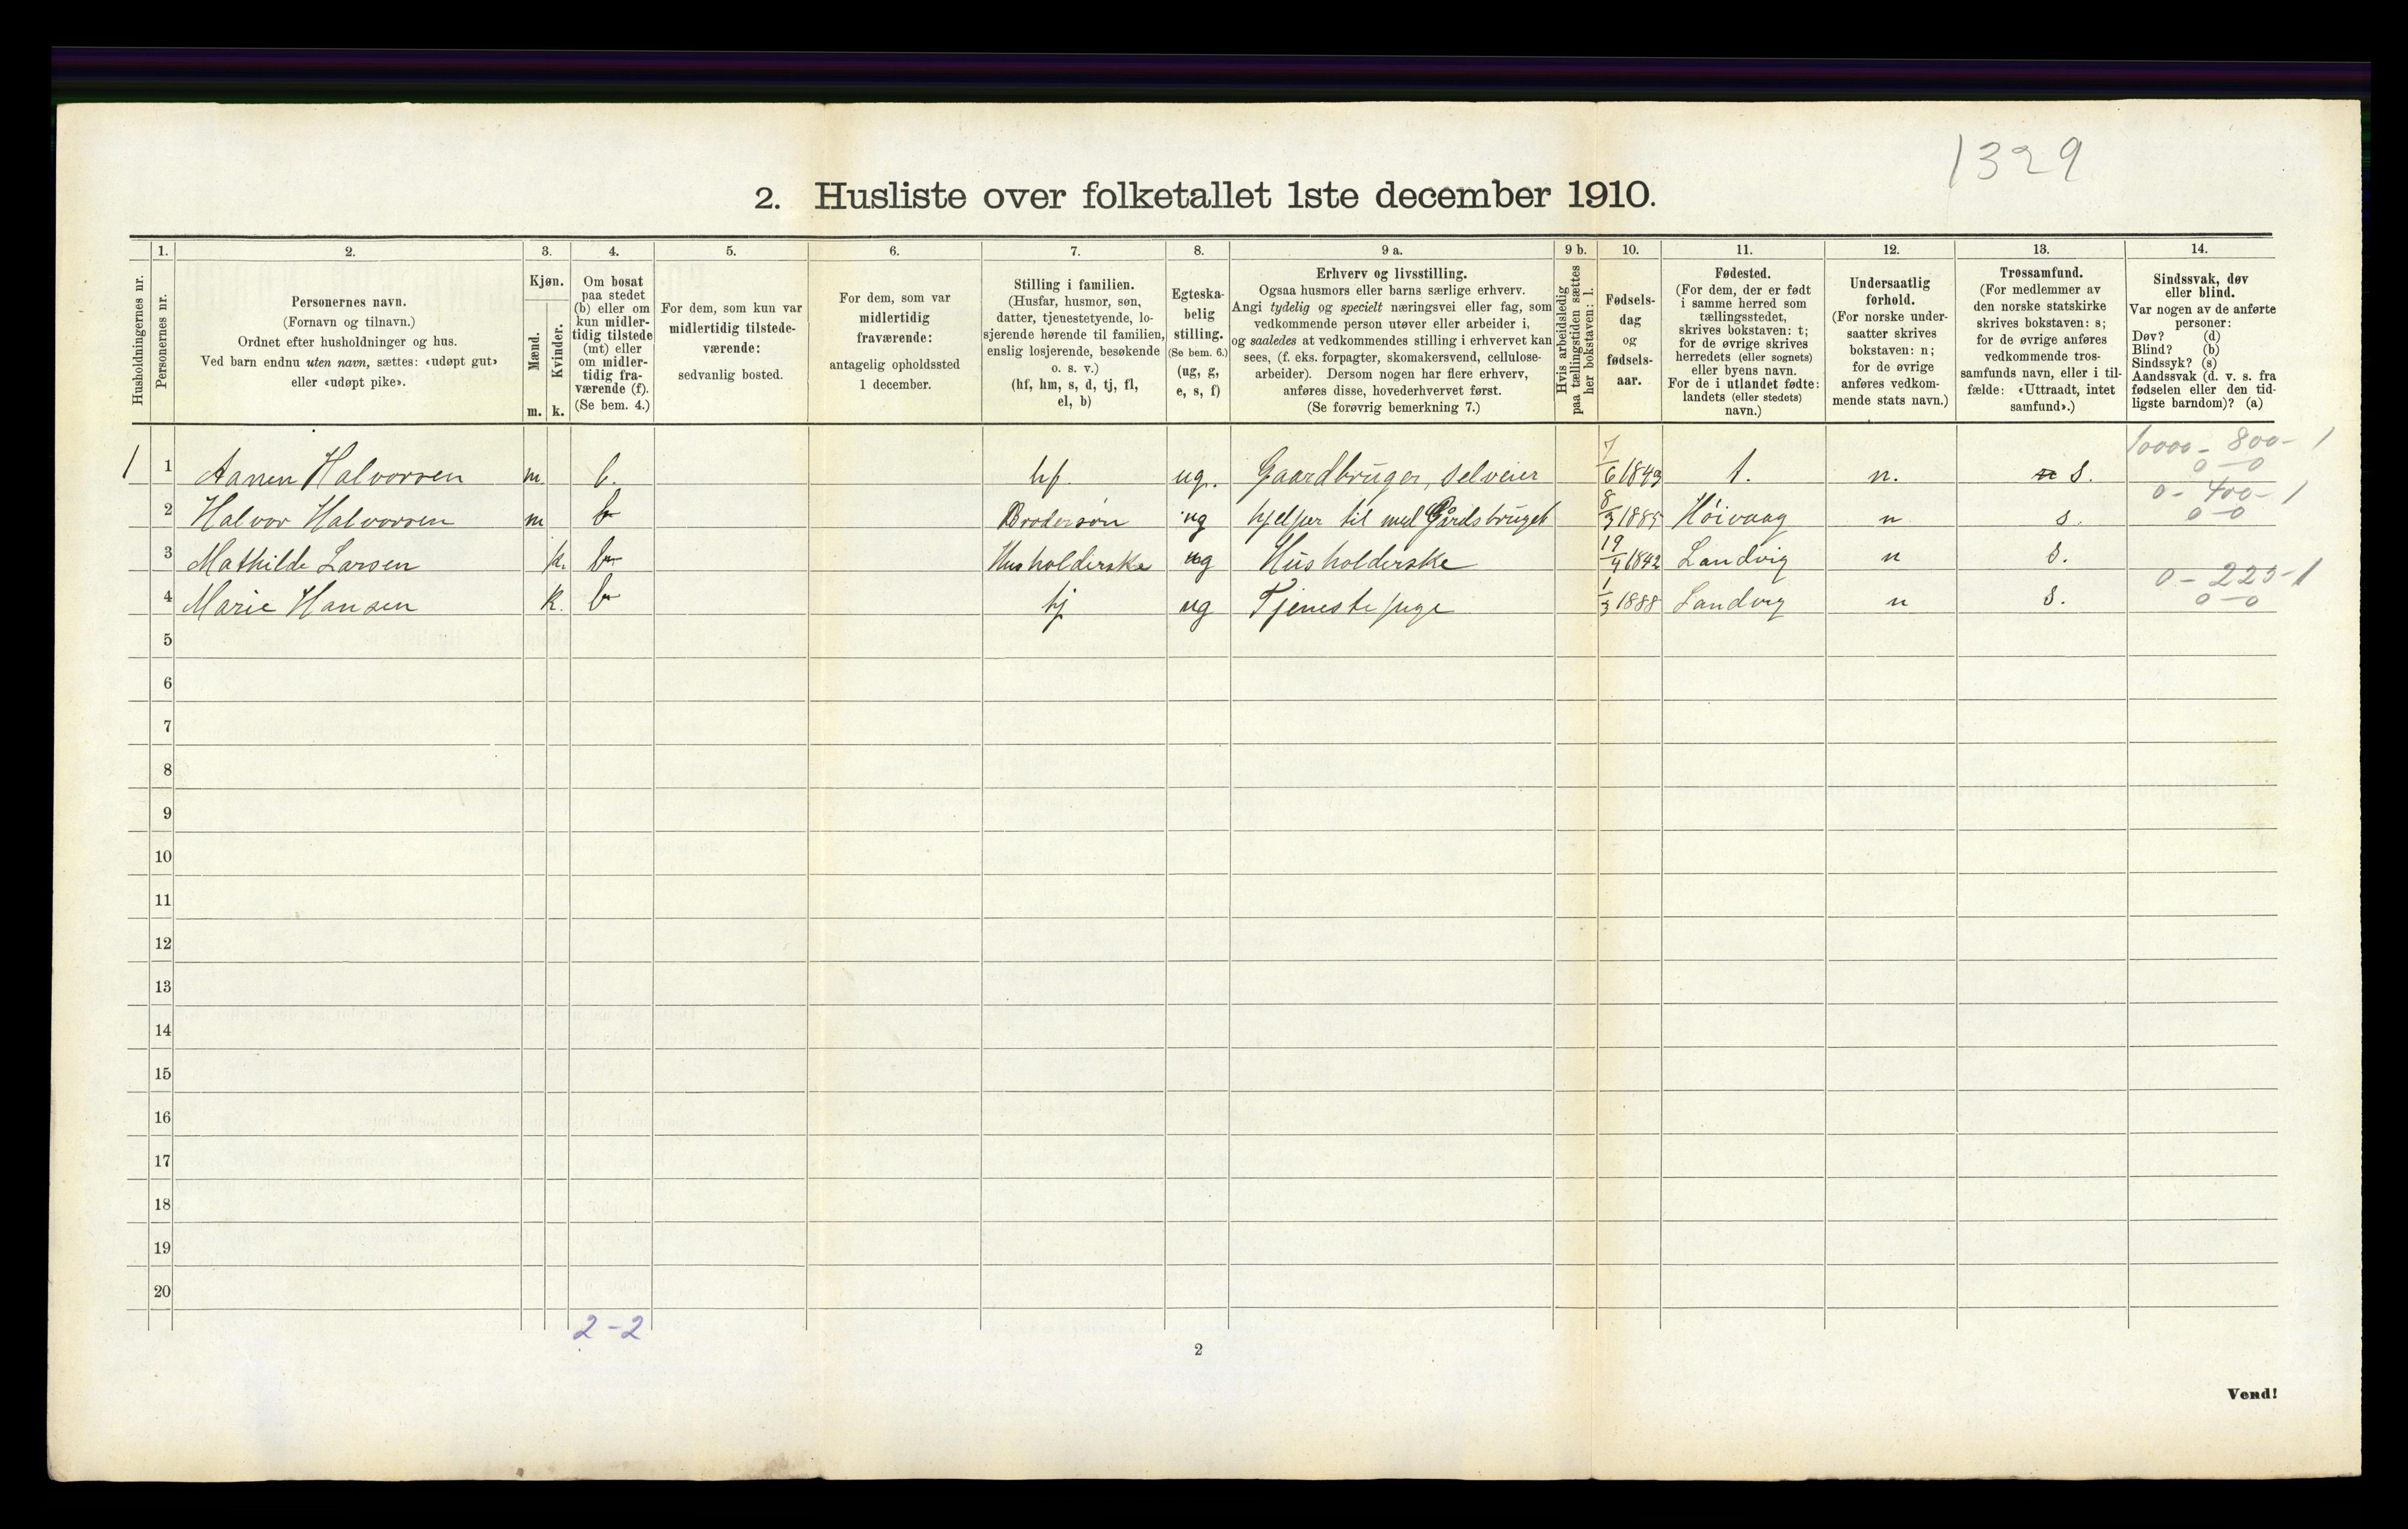 1329
2. Husliste over folketallet 1ste december 1910.
Husholdningernes nr.
1.
Personernes nr.
2.
Personernes navn.
(Fornavn og tilnavn.)
Ordnet efter husholdninger og hus.
Ved barn endnu uten navn, sættes: «udøpt gut»
eller «udøpt pike».
3.
Kjøn.
Mænd.
m.
Kvinder.
k.
4.
Om bosat
paa stedet
(b) eller om
kun midler-
tidig tilstede
(mt) eller
om midler-
tidig fra-
værende (f).
(Se bem. 4.)
5.
For dem, som kun var
midlertidig tilstede-
værende:
sedvanlig bosted.
6.
For dem, som var
midlertidig
fraværende:
antagelig opholdssted
1 december.
7.
Stilling i familien.
(Husfar, husmor, søn,
datter, tjenestetyende, lo-
sjerende hørende til familien,
enslig losjerende, besøkende
o. s. v.)
(hf, hm, s, d, tj, fl,
el, b)
8.
Egteska-
belig
stilling.
(Se bem. 6.)
(ug, g,
e, s, f)
9 a.
Erhverv og livsstilling.
Ogsaa husmors eller barns særlige erhverv.
Angi tydelig og specielt næringsvei eller fag, som
vedkommende person utøver eller arbeider i,
og saaledes at vedkommendes stilling i erhvervet kan
sees, (f. eks. forpagter, skomakersvend, cellulose-
arbeider). Dersom nogen har flere erhverv,
anføres disse, hovederhvervet først.
(Se forøvrig bemerkning 7.)
9 b.
Hvis arbeidsledig
paa tællingstiden sættes
her bokstaven: l.
10.
Fødsels-
dag
og
fødsels-
aar.
11.
Fødested.
(For dem, der er født
i samme herred som
tællingsstedet,
skrives bokstaven: t;
for de øvrige skrives
herredets (eller sognets)
eller byens navn.
For de i utlandet fødte:
landets (eller stedets)
navn.)
12.
Undersaatlig
forhold.
(For norske under-
saatter skrives
bokstaven: n;
for de øvrige
anføres vedkom-
mende stats navn.)
13.
Trossamfund.
(For medlemmer av
den norske statskirke
skrives bokstaven: s;
for de øvrige anføres
vedkommende tros-
samfunds navn, eller i til-
fælde: «Uttraadt, intet
samfund».)
14.
Sindssvak, døv
eller blind.
Var nogen av de anførte
personer:
Døv? (d)
Blind? (b)
Sindssyk? (s)
Aandssvak (d. v. s. fra
fødselen eller den tid-
ligste barndom)? (a)
10000 - 800 - 1
1 1 Aanen Halvorsen m b. hf. ug. Gaardbruger, selveier 7/6 1849 t. n. s. 0-0
0 - 400 - 1
2 Halvor Halvorsen m b Brodersøn ug hjelper til med Gårdsbruget 8/3 1885 Høivaag n s. 0-0
3 Mathilde Larsen k. b Husholderske ug Husholderske 19/4 1842 Landvig n s.
0 - 225 - 1
4 Marie Hansen k. b tj ug Tjenestepige 1/3 1888 Landvig n s. 0-0
5
6
7
8
9
10
11
12
13
14
15
16
17
18
19
20
2-2
2
Vend!